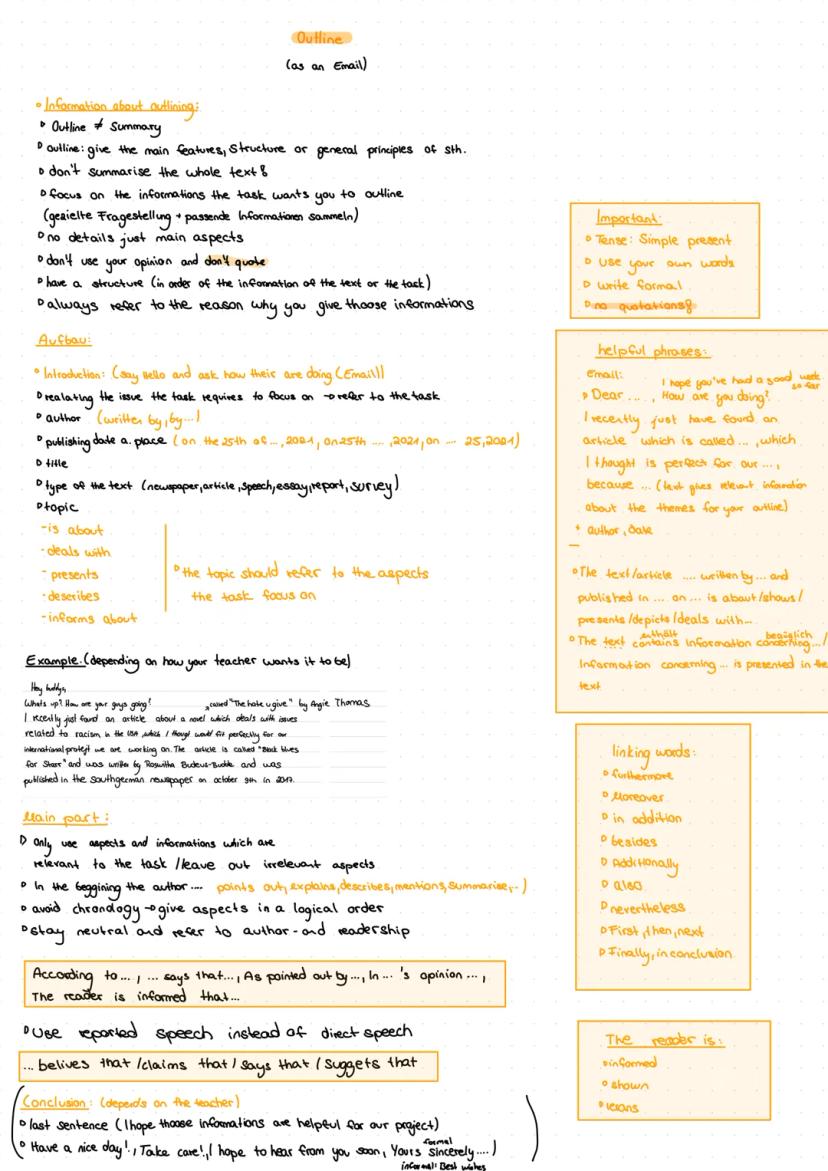 Outline
(as an Email)
Information about outlining:
Outline ≠ Summary
outline: give the main features, structure or general principles of sth.
don't summarise the whole text!
focus on the informations the task wants you to outline
(gezielte Fragestellung + passende Informationen sammeln)
no details just main aspects
don't use your opinion and don't quote
have a structure (in order of the information of the text or the task)
always refer to the reason why you give thoose informations
Aufbau:
Introduction: (say Hello and ask how their are doing (Email))
realating the issue the task requires to focus on → refer to the task
author (written by, by...)
publishing date a. place (on the 25th of ..., 2021, on 25th ...., 2021, on .... 25, 2021)
title
type of the text (newspaper, article, speech, essay, report, survey)
topic
- is about
- deals with
- presents
- describes
- informs about
the topic should refer to the aspects
the task focus on
Example. (depending on how your teacher wants it to be)
Hey buddys,
Whats up? How are your guys going?
called "The hate u give" by Angie Thomas
I recently just found an article about a novel which deals with issues
related to racism, in the USA, which I thougt would fit perfectly for our
international protejt we are working on. The article is called "Black lives
for Starr" and was written by Roswitha Budeus-Budde and was
published in the southgerman newspaper on october 9th in 2017.
Main part:
only use aspects and informations which are
relevant to the task / leave out irrelevant aspects
In the beggining the author .... points out, explains, describes, mentions, summarise, ..)
avoid chronology → give aspects in a logical order
stay neutral and refer to author- and readership
According to ... , ... says that ... , As pointed out by ... , In ... 's opinion ... ,
The reader is informed that...
Use reported speech instead of direct speech
... belives that / claims that / says that / suggets that
Conclusion: (depends on the teacher)
last sentence (I hope thoose informations are helpful for our project)
formal
Have a nice day!, Take care!, I hope to hear from you soon, Yours sincerely ....)
informal: Best wishes
Important:
Tense: Simple present
use your own words
write formal
no quotations!
helpful phrases:
Email:
I hope you've had a good week so far
Dear ... , How are you doing?
I recently just have found an
article which is called ... , which
I thought is perfect for our ... ,
because ... (text gives relevant information
about the themes for your outline)
+ author, date
The text/article .... written by ... and
published in ... on ... is about / shows /
presents / depicts / deals with...
enthält bezüglich
The text contains Information concerning ... /
Information concerning ... is presented in the
text
linking words:
furthermore
Moreover
in addition
besides
Additionally
also
nevertheless
First, then, next
Finally, in conclusion
The reader is:
informed
shown
lerans